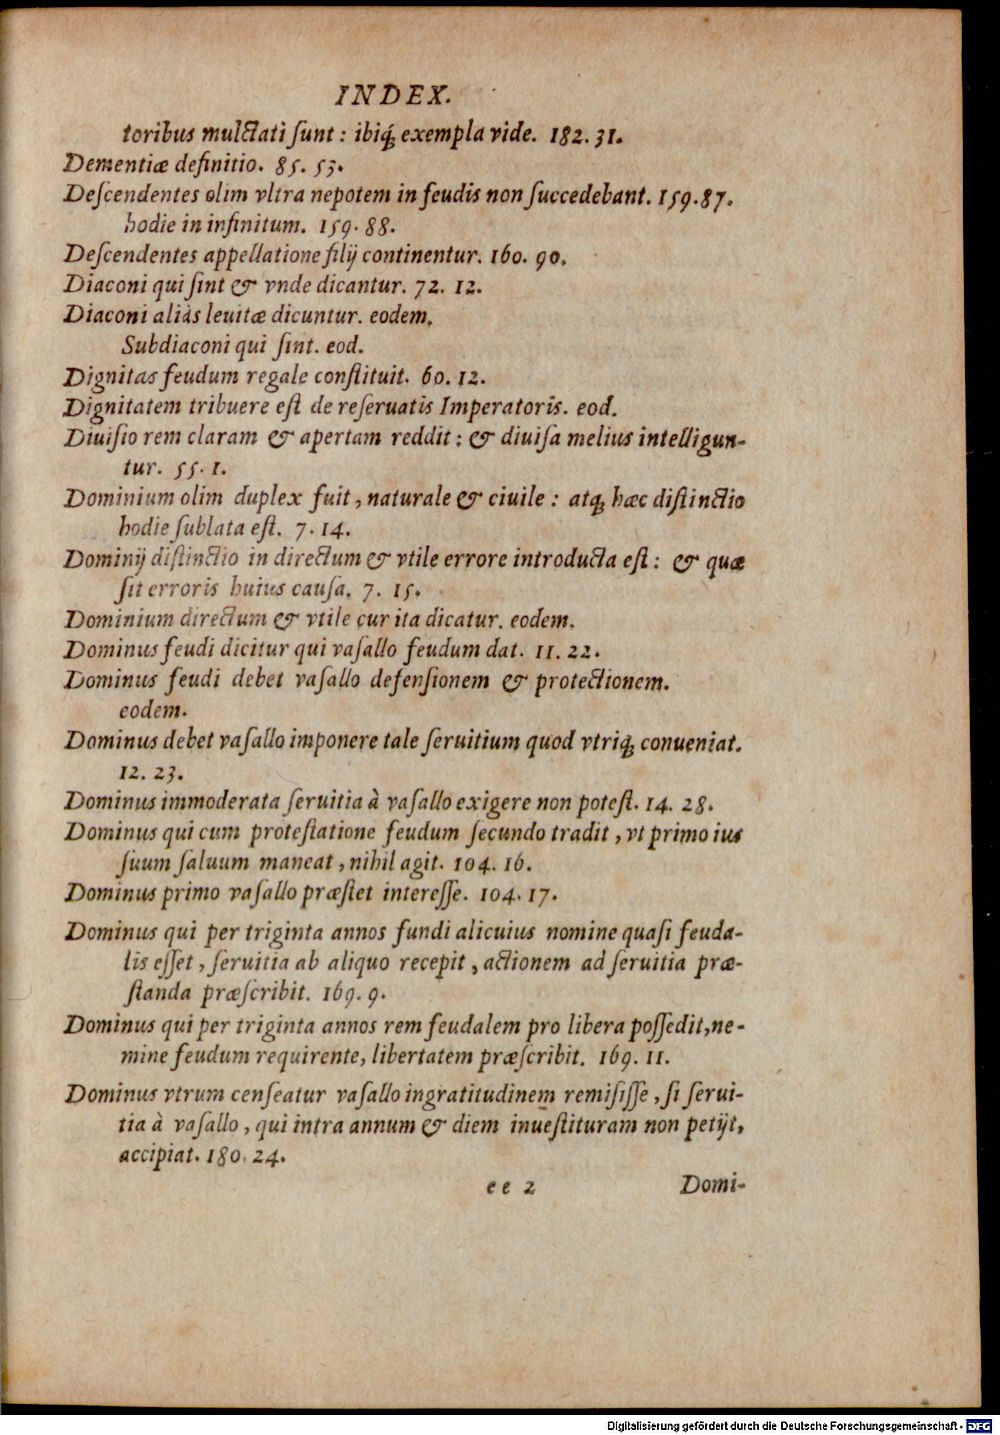 INDEX.
toribus mulctati ſunt : ibiq́; exempla vide. 182. 31.
Dementiæ definitio. 85. 53.
Deſcendentes olim vltra nepotem in feudis non ſuccedebant. 159. 87.
hodie in infinitum. 159. 88.
Deſcendentes appellatione filij continentur. 160. 90.
Diaconi qui ſint & vnde dicantur. 72. 12.
Diaconi aliàs leuitæ dicuntur. eodem.
Subdiaconi qui ſint. eod.
Dignitas feudum regale conſtituit. 60. 12.
Dignitatem tribuere eſt de reſeruatis Imperatoris. eod.
Diuiſio rem claram & apertam reddit : & diuiſa melius intelligun-
tur. 55. 1.
Dominium olim duplex fuit, naturale & ciuile : atq́; hæc diſtinctio
hodie ſublata eſt. 7. 14.
Dominij diſtinctio in directum & vtile errore introducta eſt : & quæ
ſit erroris huius cauſa. 7. 15.
Dominium directum & vtile cur ita dicatur. eodem.
Dominus feudi dicitur qui vaſallo feudum dat. 11. 22.
Dominus feudi debet vaſallo defenſionem & protectionem.
eodem.
Dominus debet vaſallo imponere tale ſeruitium quod vtriq́; conueniat.
12. 23.
Dominus immoderata ſeruitia à vaſallo exigere non poteſt. 14. 28.
Dominus qui cum proteſtatione feudum ſecundo tradit, vt primo ius
ſuum ſaluum maneat, nihil agit. 104. 16.
Dominus primo vaſallo præſtet intereſſe. 104. 17.
Dominus qui per triginta annos fundi alicuius nomine quaſi feuda-
lis eſſet, ſeruitia ab aliquo recepit, actionem ad ſeruitia præ-
ſtanda præſcribit. 169. 9.
Dominus qui per triginta annos rem feudalem pro libera poſſedit, ne-
mine feudum requirente, libertatem præſcribit. 169. 11.
Dominus vtrum cenſeatur vaſallo ingratitudinem remiſiſſe, ſi ſerui-
tia à vaſallo, qui intra annum & diem inueſtituram non petijt,
accipiat. 180. 24.
ee 2 Domi-
Digitalisierung gefördert durch die Deutsche Forschungsgemeinschaft - DFG